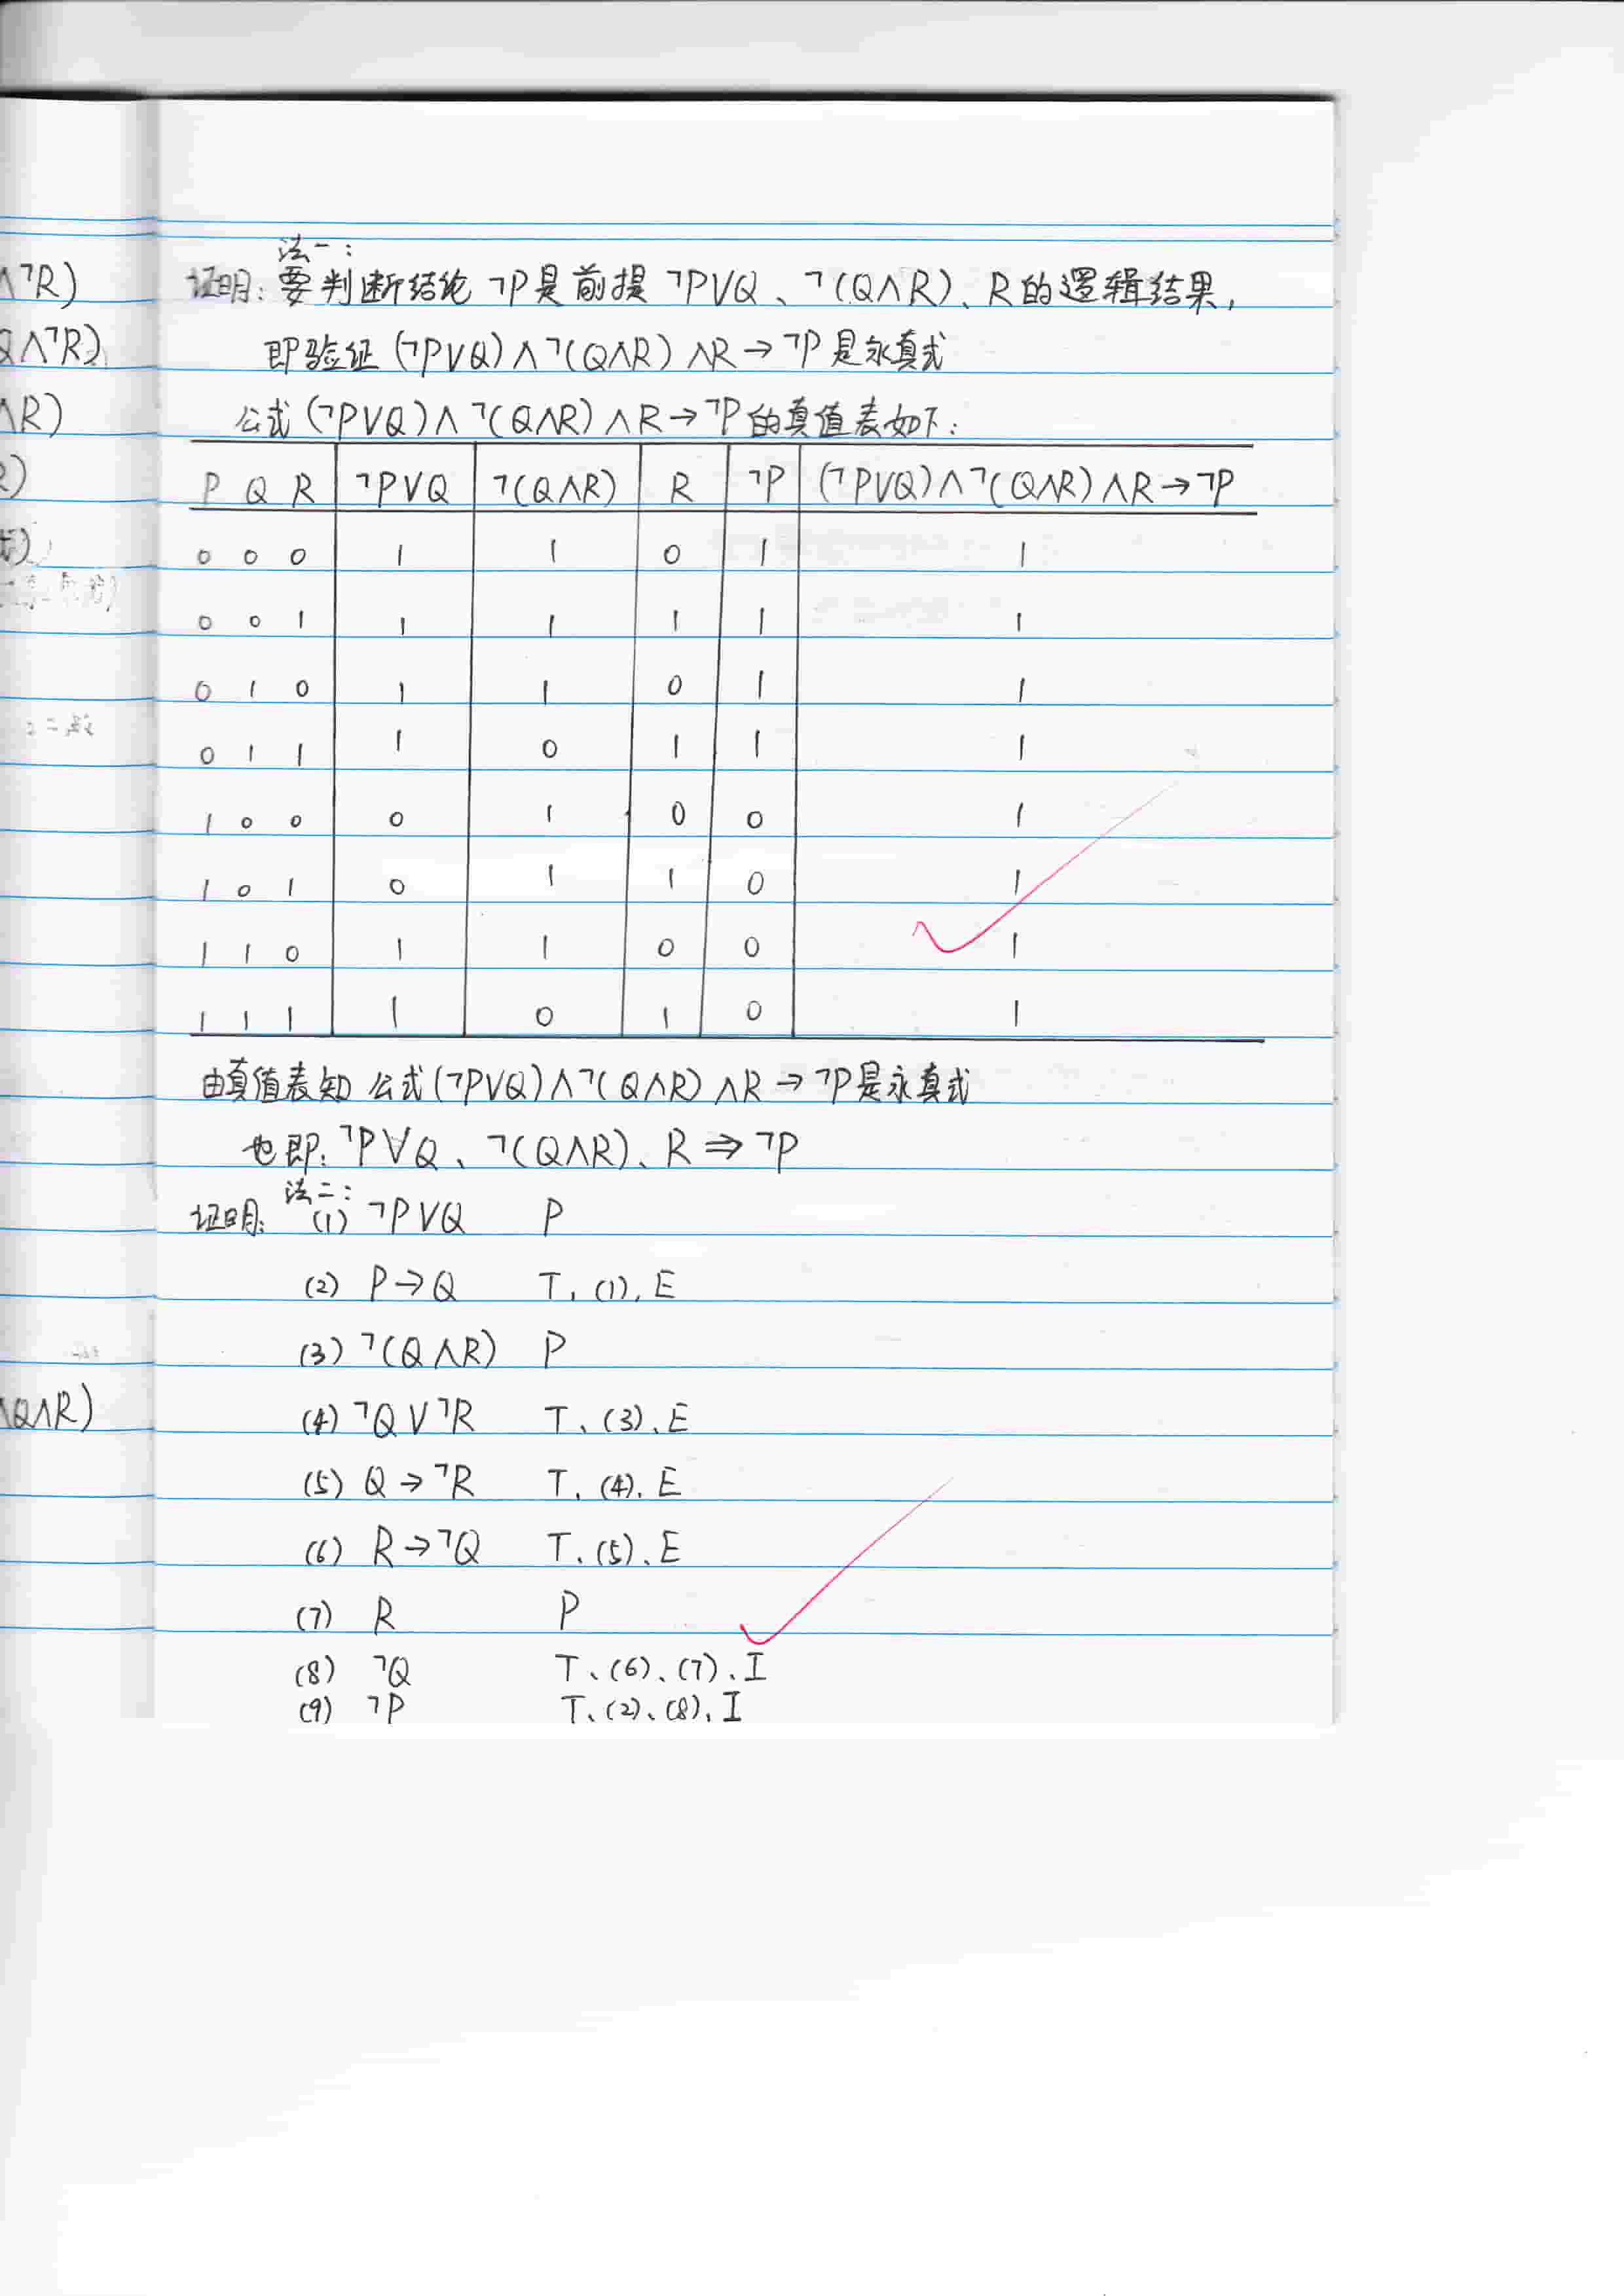 ∧¬R)
Q∧¬R)
∧R)
R)
∧Q∧R)
法一:
证明: 要判断结论 ¬P是前提 ¬P∨Q、¬(Q∧R)、R的逻辑结果,
即验证 (¬P∨Q)∧¬(Q∧R)∧R→¬P是永真式
公式 (¬P∨Q)∧¬(Q∧R)∧R→¬P的真值表如下:
P Q R ¬P∨Q ¬(Q∧R) R ¬P (¬P∨Q)∧¬(Q∧R)∧R→¬P
0 0 0 1 1 0 1 1
0 0 1 1 1 1 1 1
0 1 0 1 1 0 1 1
0 1 1 1 0 1 1 1
1 0 0 0 1 0 0 1
1 0 1 0 1 1 0 1
1 1 0 1 1 0 0 1
1 1 1 1 0 1 0 1
由真值表知 公式(¬P∨Q)∧¬(Q∧R)∧R→¬P是永真式
也即: ¬P∨Q、¬(Q∧R)、R⇒¬P
法二:
证明: (1) ¬P∨Q P
(2) P→Q T, (1), E
(3) ¬(Q∧R) P
(4) ¬Q∨¬R T、(3)、E
(5) Q→¬R T, (4), E
(6) R→¬Q T、(5)、E
(7) R P
(8) ¬Q T、(6)、(7)、I
(9) ¬P T、(2)、(8)、I